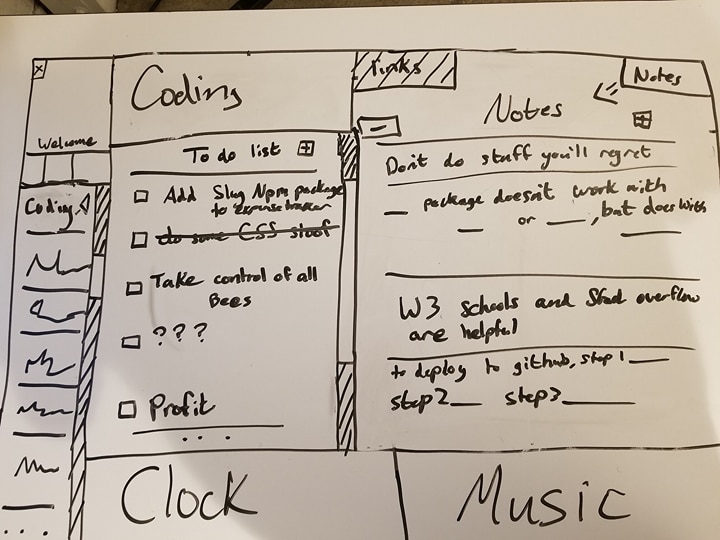 x
Welcome
Coding
Coding
To do list +
Add Slug Npm package
to expense tracker
do some CSS stoof
Take control of all
Bees
???
Profit
...
links
Notes
Notes
+
-
Don't do stuff you'll regret
__ package doesn't work with
__ or ___, but does with
____
W3 schools and Stad overflow
are helpful
to deploy to github, step 1 ___
step2__ step3____
Clock
Music
...